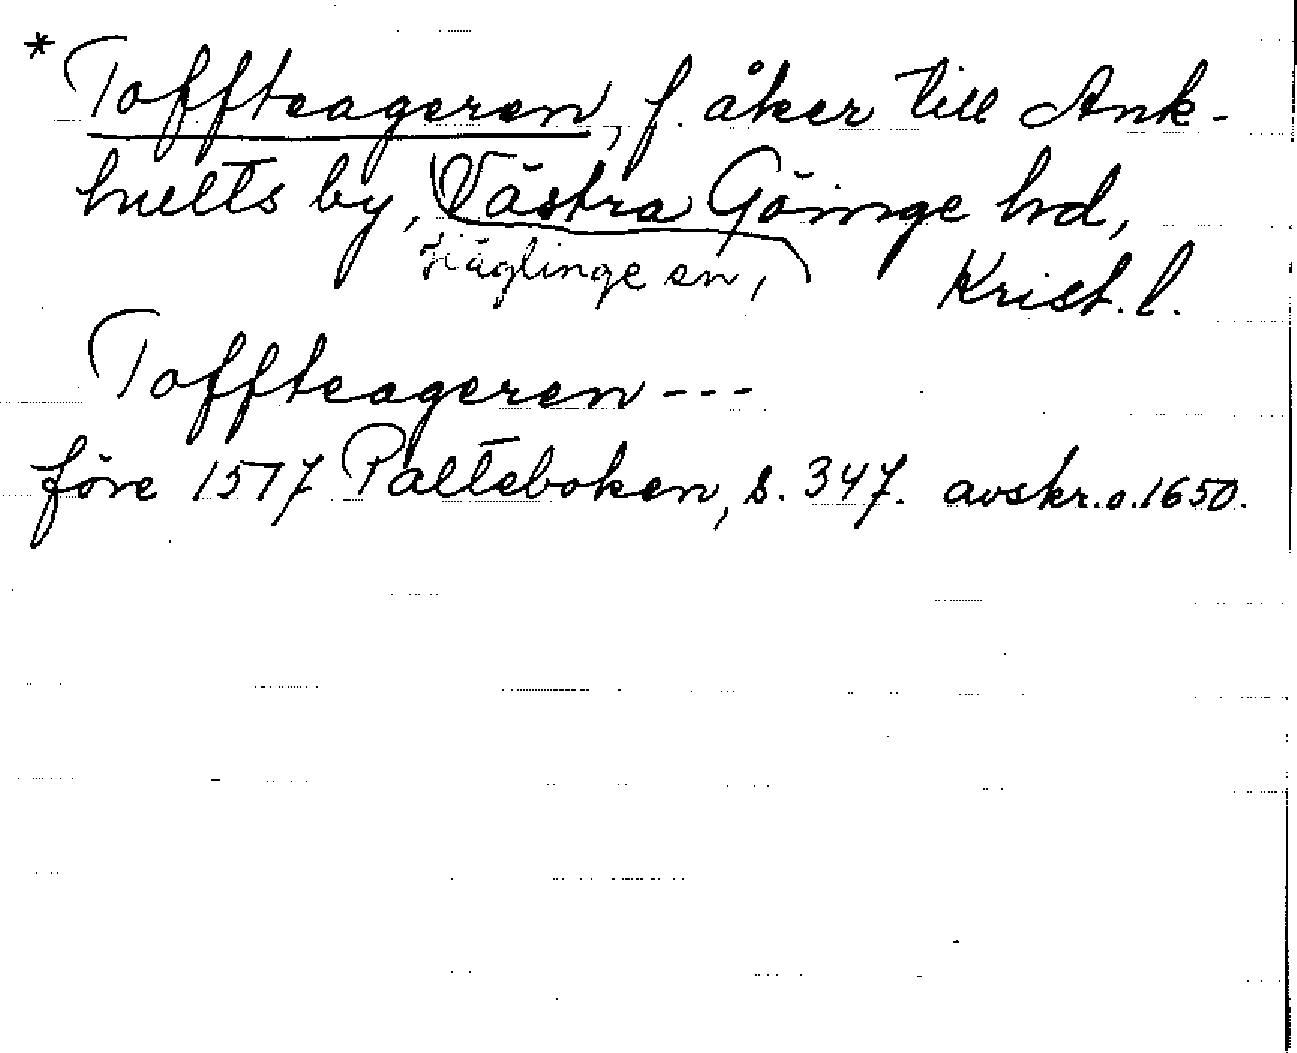 * Toffteageren, f. åker till Ank-
hults by, Västra Göinge hd,
Häglinge sn,
Krist. l.
Toffteageren ---
före 1517 Palteboken, s. 347. avskr. o. 1650.